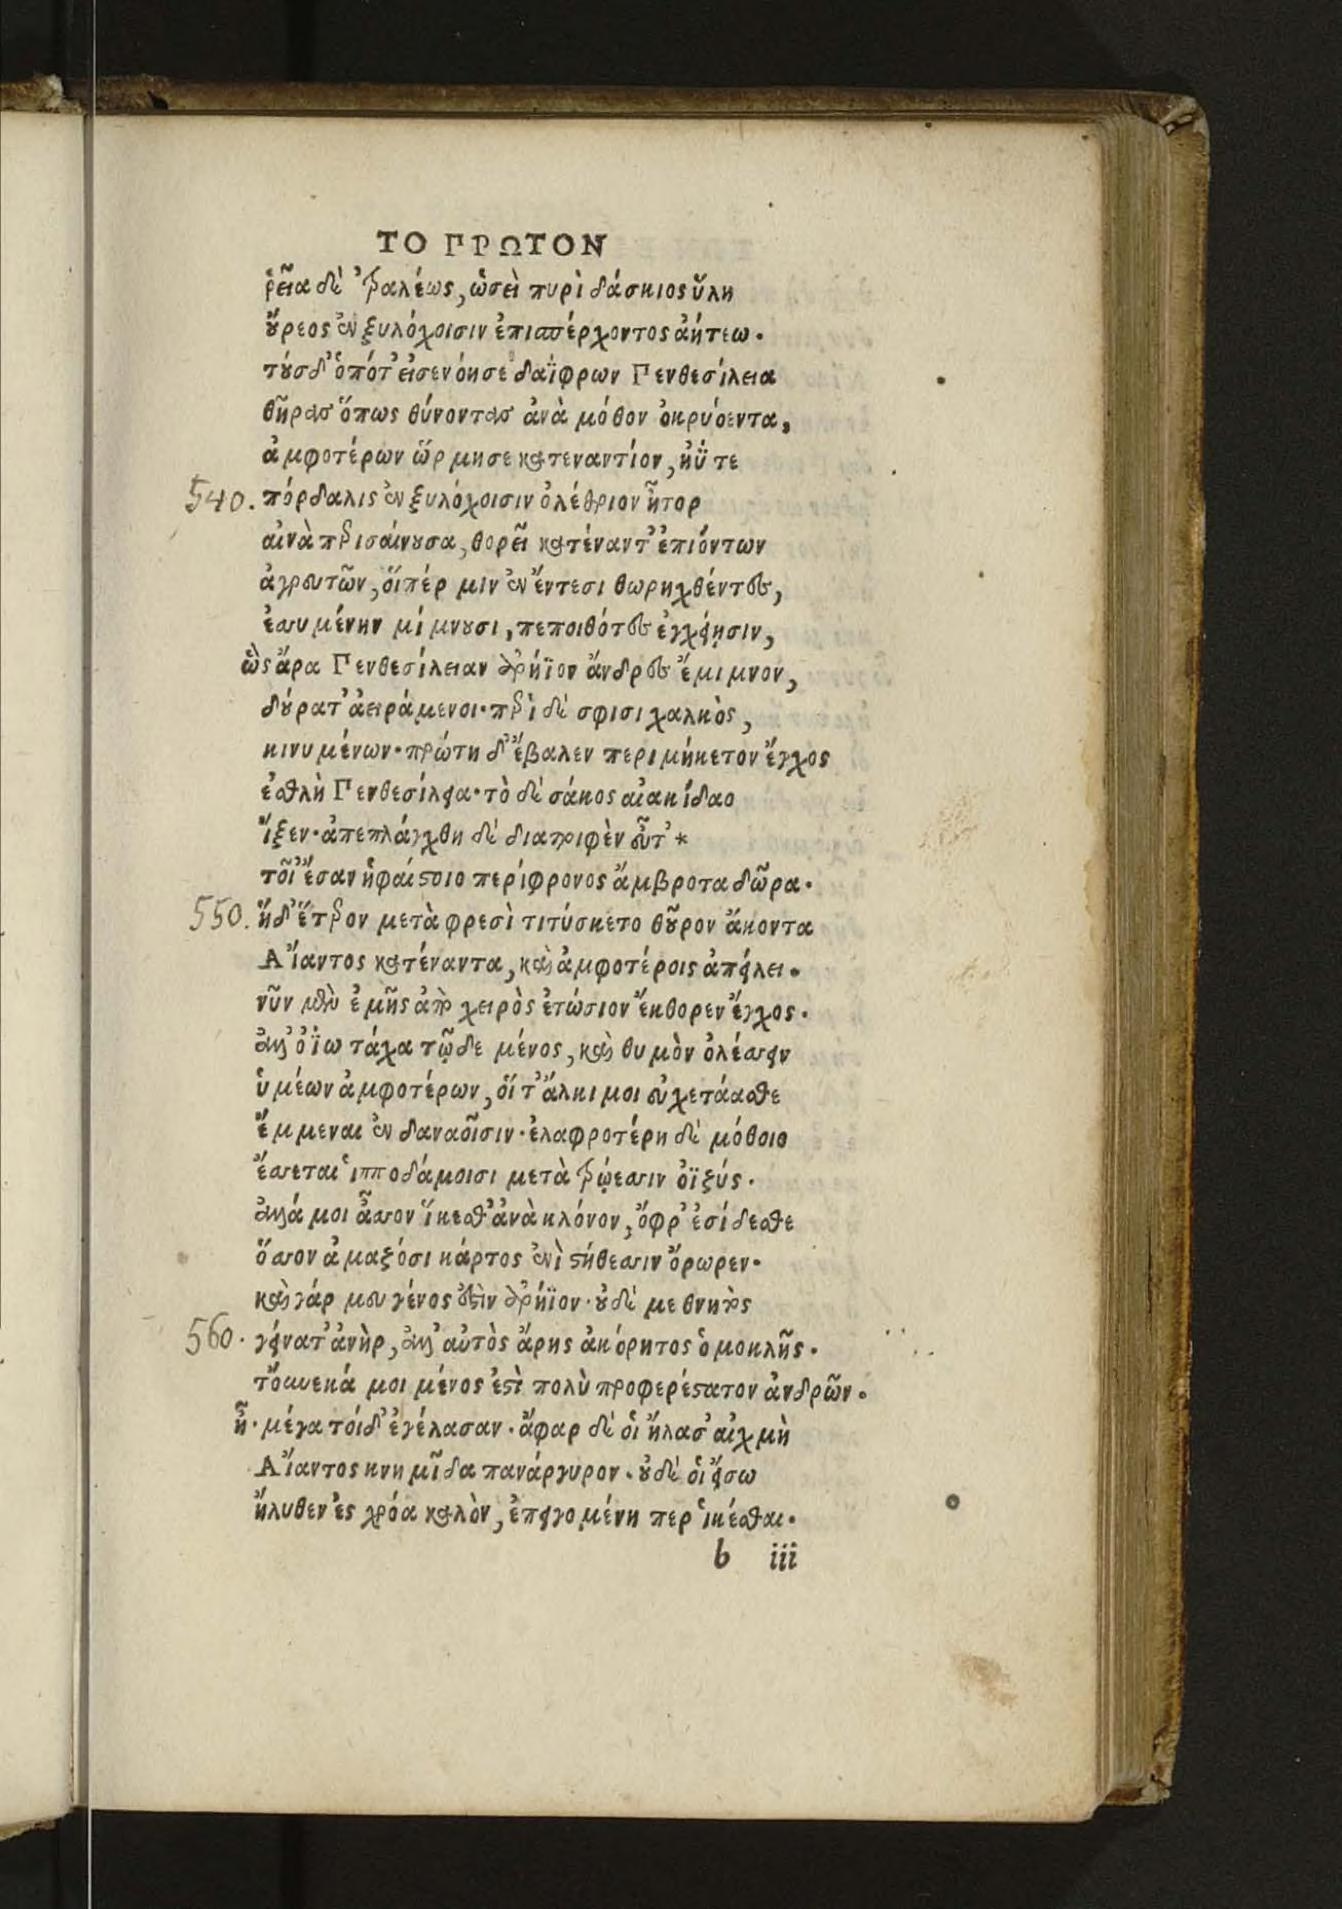 ΤΟ ΠΡΩΤΟΝ
ῥεῖα δὲ ἀζαλέως, ὡσεὶ πυρὶ δάσκιος ὕλη
οὔρεος ἐν ξυλόχοισιν ἐπισπέρχοντος ἀήτεω.
τοὺσ δ' ὁπότ' εἰσενόησε δαΐφρων Πενθεσίλεια
θῆρασ ὅπως θύνοντασ ἀνὰ μόθον ὀκρυόεντα,
ἀμφοτέρων ὥρμησε κατεναντίον, ηΰτε
540. πόρδαλις ἐν ξυλόχοισιν ὀλέθριον ἦτορ
αἰνὰ περισαίνουσα, θορεῖ κατέναντ' ἐπιόντων
ἀγρευτῶν, οἵπέρ μιν ἐν ἔντεσι θωρηχθέντες,
ἐσσυμένην μίμνουσι, πεποιθότες ἐγχείῃσιν,
ὣς ἄρα Πενθεσίλειαν ἀρήϊον ἄνδρες ἔμιμνον,
δούρατ' ἀειράμενοι· περὶ δέ σφισι χαλκὸς,
κινυμένων· πρώτη δ' ἔβαλεν περιμήκετον ἔγχος
ἐσθλὴ Πενθεσίλεια· τὸ δὲ σάκος αἰακίδαο
ἷξεν· ἀπεπλάγχθη δὲ διατριφὲν εὖτ' *
τοῖ' ἔσαν ἡφαίστοιο περίφρονος ἄμβροτα δῶρα.
550. ἥ δ' ἕτερον μετὰ φρεσὶ τιτύσκετο θοῦρον ἄκοντα
Αἴαντος κατέναντα, καὶ ἀμφοτέροις ἀπείλει.
νῦν μὲν ἐμῆς ἀπὸ χειρὸς ἐτώσιον ἔκθορεν ἔγχος.
ἀλλ' ὀΐω τάχα τῷδε μένος, καὶ θυμὸν ὀλέσσειν
ὑμέων ἀμφοτέρων, οἵ τ' ἄλκιμοι εὐχετάασθε
ἔμμεναι ἐν δαναοῖσιν· ἐλαφροτέρη δὲ μόθοιο
ἔσσεται ἱπποδάμοισι μετὰ τρώεσσιν ὀϊξύς.
ἀλλά μοι ἆσσον ἵκεσθ' ἀνὰ κλόνον, ὄφρ' ἐσίδεσθε
ὅσσον ἀμαζόσι κάρτος ἐνὶ στήθεσσιν ὄρωρεν.
καὶ γάρ μευ γένος ἐστὶν ἀρήϊον· οὐδέ με θνητὸς
560. γείνατ' ἀνὴρ, ἀλλ' αὐτὸς ἄρης ἀκόρητος ὁμοκλῆς.
τοὔνεκά μοι μένος ἐστὶ πολὺ προφερέστατον ἀνδρῶν.
ἦ· μέγα τοίδ' ἐγέλασαν. ἄφαρ δέ οἱ ἤλασ' αἰχμὴ
Αἴαντος κνημῖδα πανάργυρον. οὐδέ οἱ εἴσω
ἤλυθεν ἐς χρόα καλὸν, ἐπειγομένη περ ἱκέσθαι.
b iii